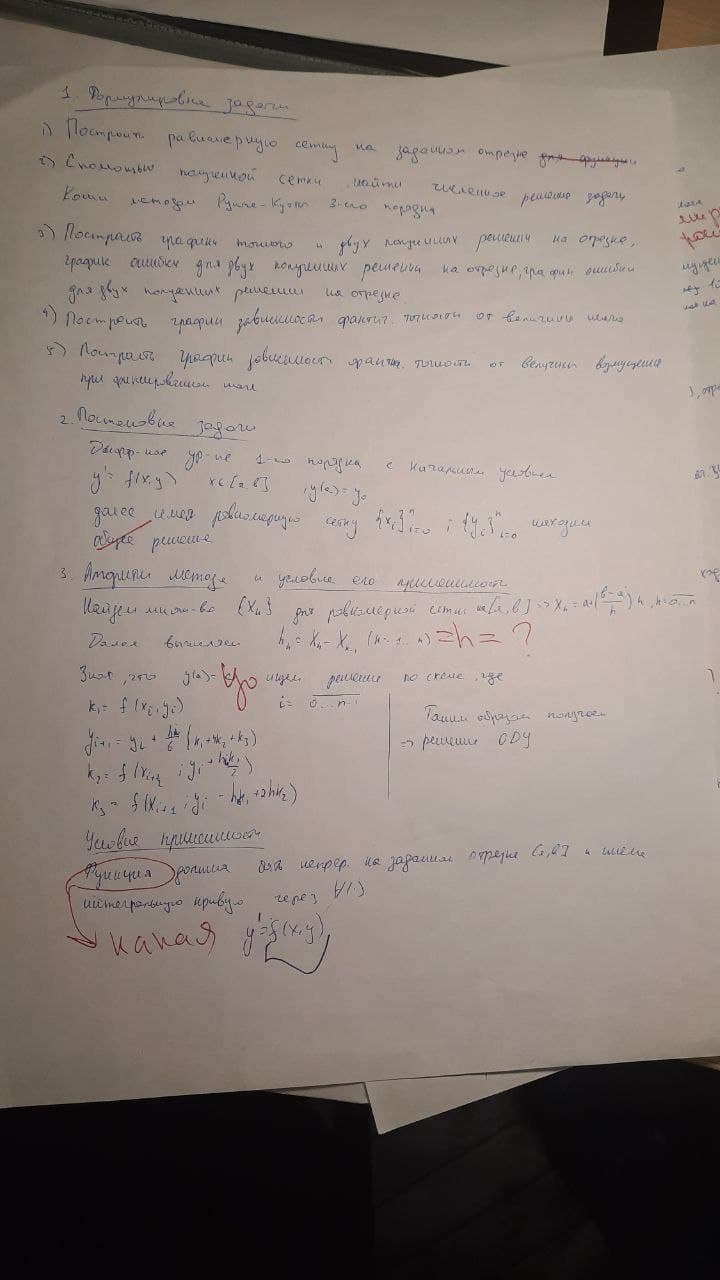 1. Формулировка задачи
1) Построить равномерную сетку на заданном отрезке для функции
2) С помощью полученной сетки найти численное решение задачи
Коши методом Рунге-Кутты 3-его порядка
3) Построить графики точного и двух полученных решений на отрезке,
график ошибки для двух полученных решений на отрезке, график ошибки
для двух полученных решений на отрезке
4) Построить график зависимости фактич. точности от величины шага
5) Построить график зависимости фактич. точности от величины возмущения
при фиксированном шаге
2. Постановка задачи
ур-ие 1-го порядка с начальным условием
y' = f(x,y) x∈[a,b] , y(a)=y₀
далее равномерную сетку {xᵢ}ⁿᵢ₌₀ ; {yᵢ}ⁿᵢ₌₀ находим
общее решение
3. Алгоритм метода и условие его применимости
Найдем множ-во {Xₙ} для равномерной сетки на [a,b] => Xₙ = a+(b-a/n)
Далее вычисляем hₙ = Xₙ - Xₙ₋₁ (n=1...n) =h= ?
Зная, что y(a)= y₀ ищем решение по схеме, где
k₁ = f(xᵢ, yᵢ) i = 0...n-1
yᵢ₊₁ = yᵢ + h/6 (k₁+4k₂+k₃)
k₂ = f(xᵢ₊½ ; yᵢ + hk₁/2)
k₃ = f(xᵢ₊₁ ; yᵢ - hk₁ + 2hk₂)
Таким образом получаем
=> решение ОДУ
Условие применимости
Функция должна быть непрер. на заданном отрезке [a,b] и иметь
интегральную кривую через ∀(.)
какая y'=f(x,y)